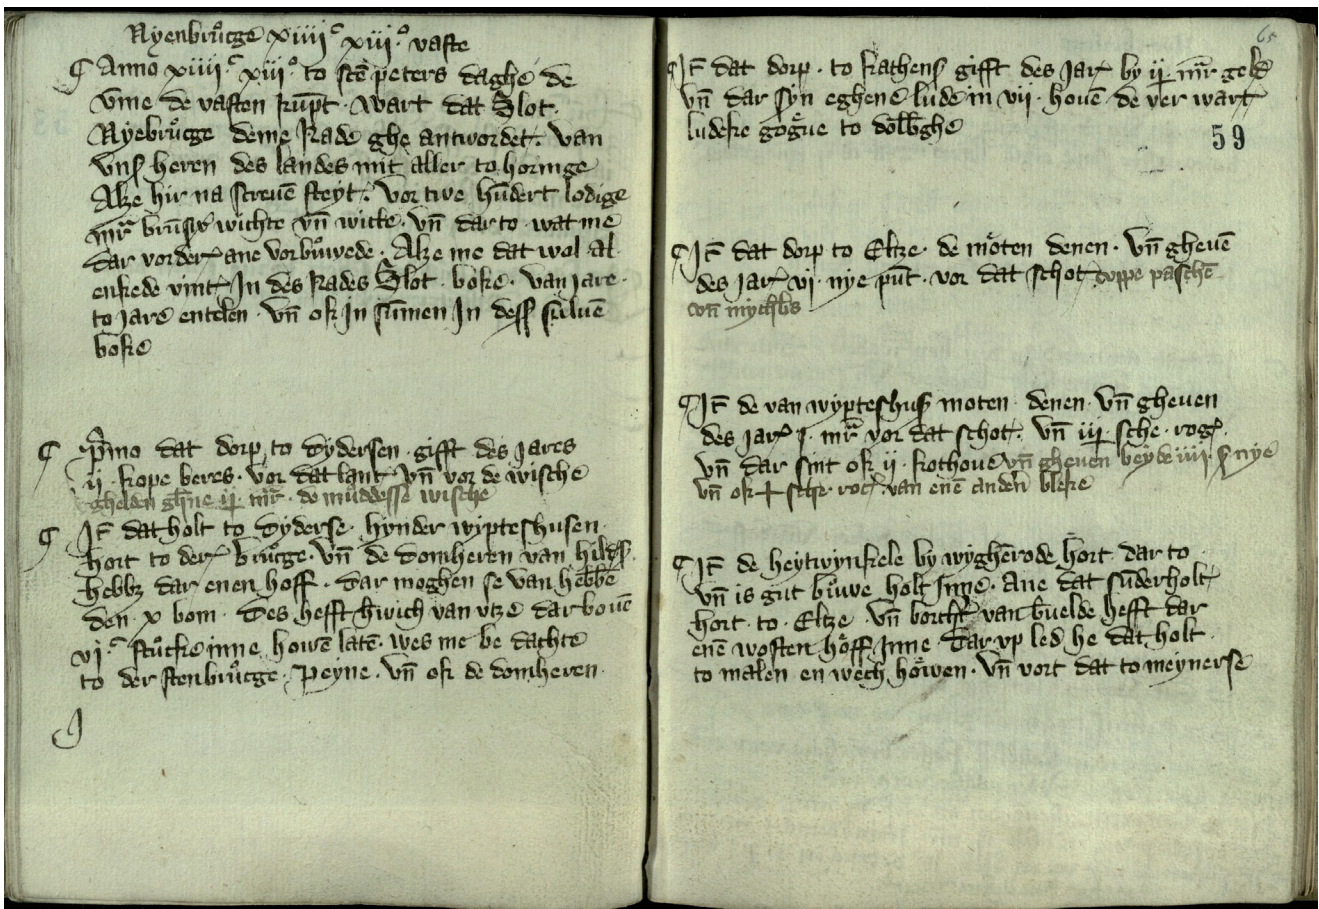 Nyenbrůcge xiiiiᶜ xiiiº vaste
¶ Anno xiiiiᶜ xiiiº to sc̄e peters daghe de
vm̄e de vasten kūpt · wart dat Slot ·
Nyebrůcge deme Rade ghe antwordet · van
vnß heren des landes mit aller to horinge
Alze hir na screuē steyt · vor twe hūdert lodige
mr̄ brūsw wichte vn̄ witte · vn̄ dar to wat me
dar vorder ane vorbůwede · Alze me dat wol al
enkede vint In des Rades Slot · boke · van jare ·
to jare entelen · vn̄ ok In sūmen In dess suluē
boke
¶ p̄mo dat dorp to dydersen · gifft des jares
ij · kope beres · vor dat lant vn̄ vor de wische
ghelden mr̄ · de müddesse wische
¶ It̄ dat holt to dyderse · hynder wypteshusen ·
hort to der brůcge · vn̄ de domheren van hildß ·
hebbꝫ dar enen hoff · dar moghen se van hebbē
den x bom · des hefft hīrich van vtze dar bouē
vjᶜ stůcke inne howen latē · wes me be dachte
to der stenbrůcge · Peyne · vn̄ ok de domheren ·
J
65
¶ It̄ dat dorp · to kathenß gifft des Jar by ij mr̄ geld
vn̄ dar syn eghene lude in vij · houē · de ver wart
ludeke gogue to dolb̄ghe
59
¶ It̄ dat dorp to Eltze · de möten denen · vn̄ gheuē
des jar vj · nye pūt · vor dat schot toppe paschē
vn̄ mychlis
¶ It̄ de van wypteshuß moten · denen · vn̄ gheuen
des jar j · mr̄ vor dat schot · vn̄ iij sche · rog
vn̄ dar sint ok ij · kothoue vn̄ gheuen beyde iiii ß nye
vn̄ ok sche · roc · van enē anden bleke
¶ It̄ de heytwynkele by wyghērode hort dar to
vn̄ is gut bůwe holt Inne · Ane dat suderholt
hort · to · Eltze vn̄ borcht van b̄uelde hefft dar
enē wosten hoff Inne dar vp led he dat holt ·
to malen en wech höwen · vn̄ vort dat to meynerse